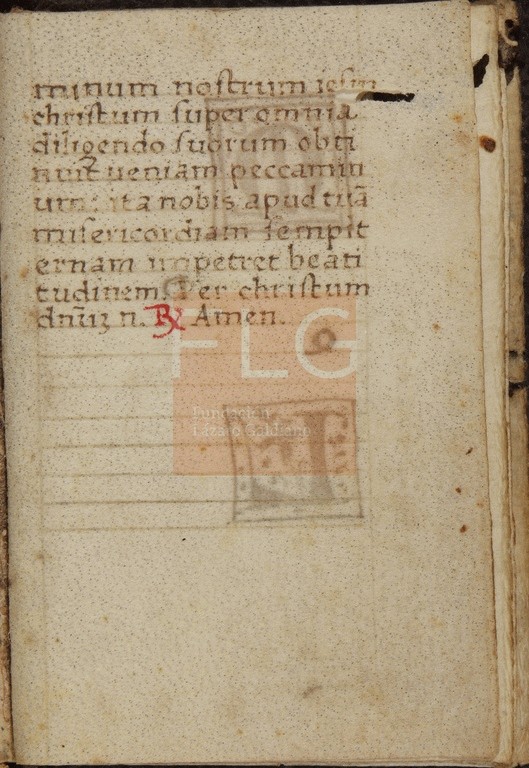 minum nostrum iesum
christum super omnia
diligendo suorum obti
nuit ueniam peccamin
um: ita nobis apud tuã
misericordiam sempit
ernam impetret beati
tudinem Per christum
dñuʒ n. ℟ Amen.
FLG
Fundación
Lázaro Galdiano